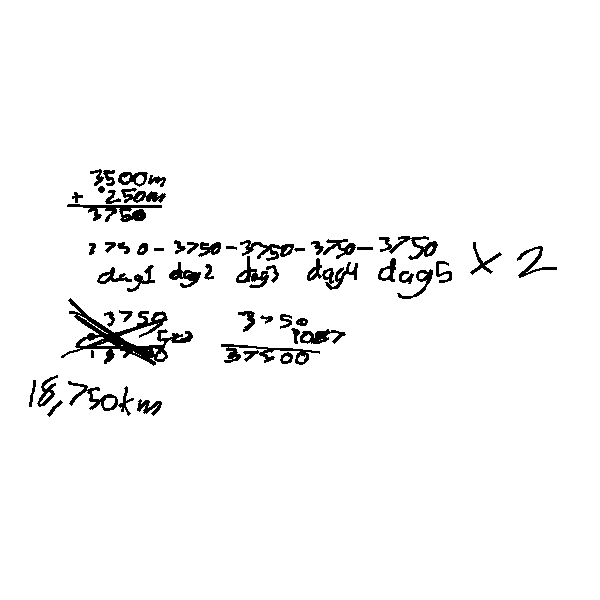 3500m
+ 250m
3750
3750 - 3750 - 3750 - 3750 - 3750 × 2
dag1 dag2 dag3 dag4 dag5
3750 3750
37500
18,750km